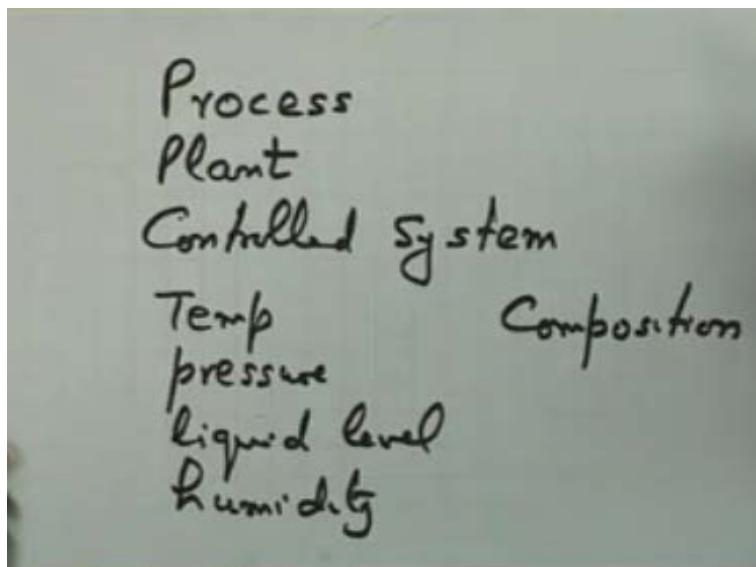 Process
Plant
Controlled system
Temp Composition
pressure
liquid level
humidity